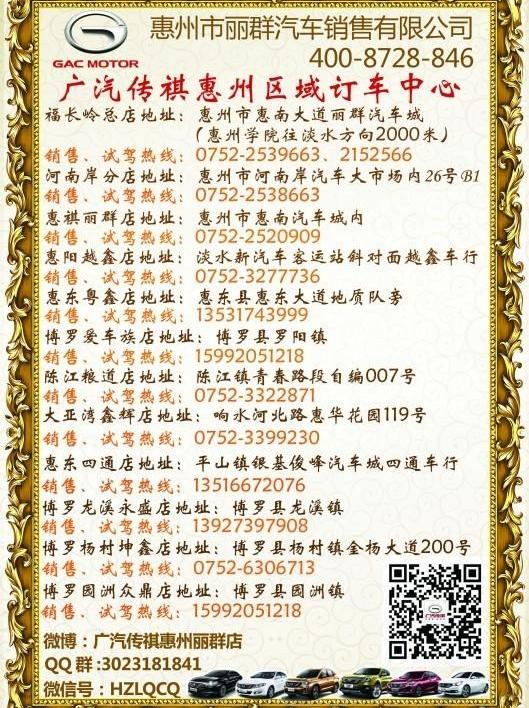 惠州市丽群汽车销售有限公司
GAC MOTOR
400-8728-846
广汽传祺惠州区域订车中心
福长岭总店地址：惠州市惠南大道丽群汽车城
（惠州学院往淡水方向2000米）
销售、试驾热线：0752-2539663、2152566
河南岸分店地址：惠州市河南岸汽车大市场内26号B1
销售、试驾热线：0752-2538663
惠祺丽群店地址：惠州市惠南汽车城内
销售、试驾热线：0752-2520909
惠阳越鑫店地址：淡水新汽车客运站斜对面越鑫车行
销售、试驾热线：0752-3277736
惠东粤鑫店地址：惠东县惠东大道地质队旁
销售、试驾热线：13531743999
博罗爱车族店地址：博罗县罗阳镇
销售、试驾热线：15992051218
陈江粮道店地址：陈江镇青春路段自编007号
销售、试驾热线：0752-3322871
大亚湾鑫辉店地址：响水河北路惠华花园119号
销售、试驾热线：0752-3399230
惠东四通店地址：平山镇银基俊峰汽车城四通车行
销售、试驾热线：13516672076
博罗龙溪永盛店地址：博罗县龙溪镇
销售、试驾热线：13927397908
博罗杨村坤鑫店地址：博罗县杨村镇金杨大道200号
销售、试驾热线：0752-6306713
博罗园洲众鼎店地址：博罗县园洲镇
销售、试驾热线：15992051218
微博：广汽传祺惠州丽群店
QQ群:3023181841
微信号：HZLQCQ